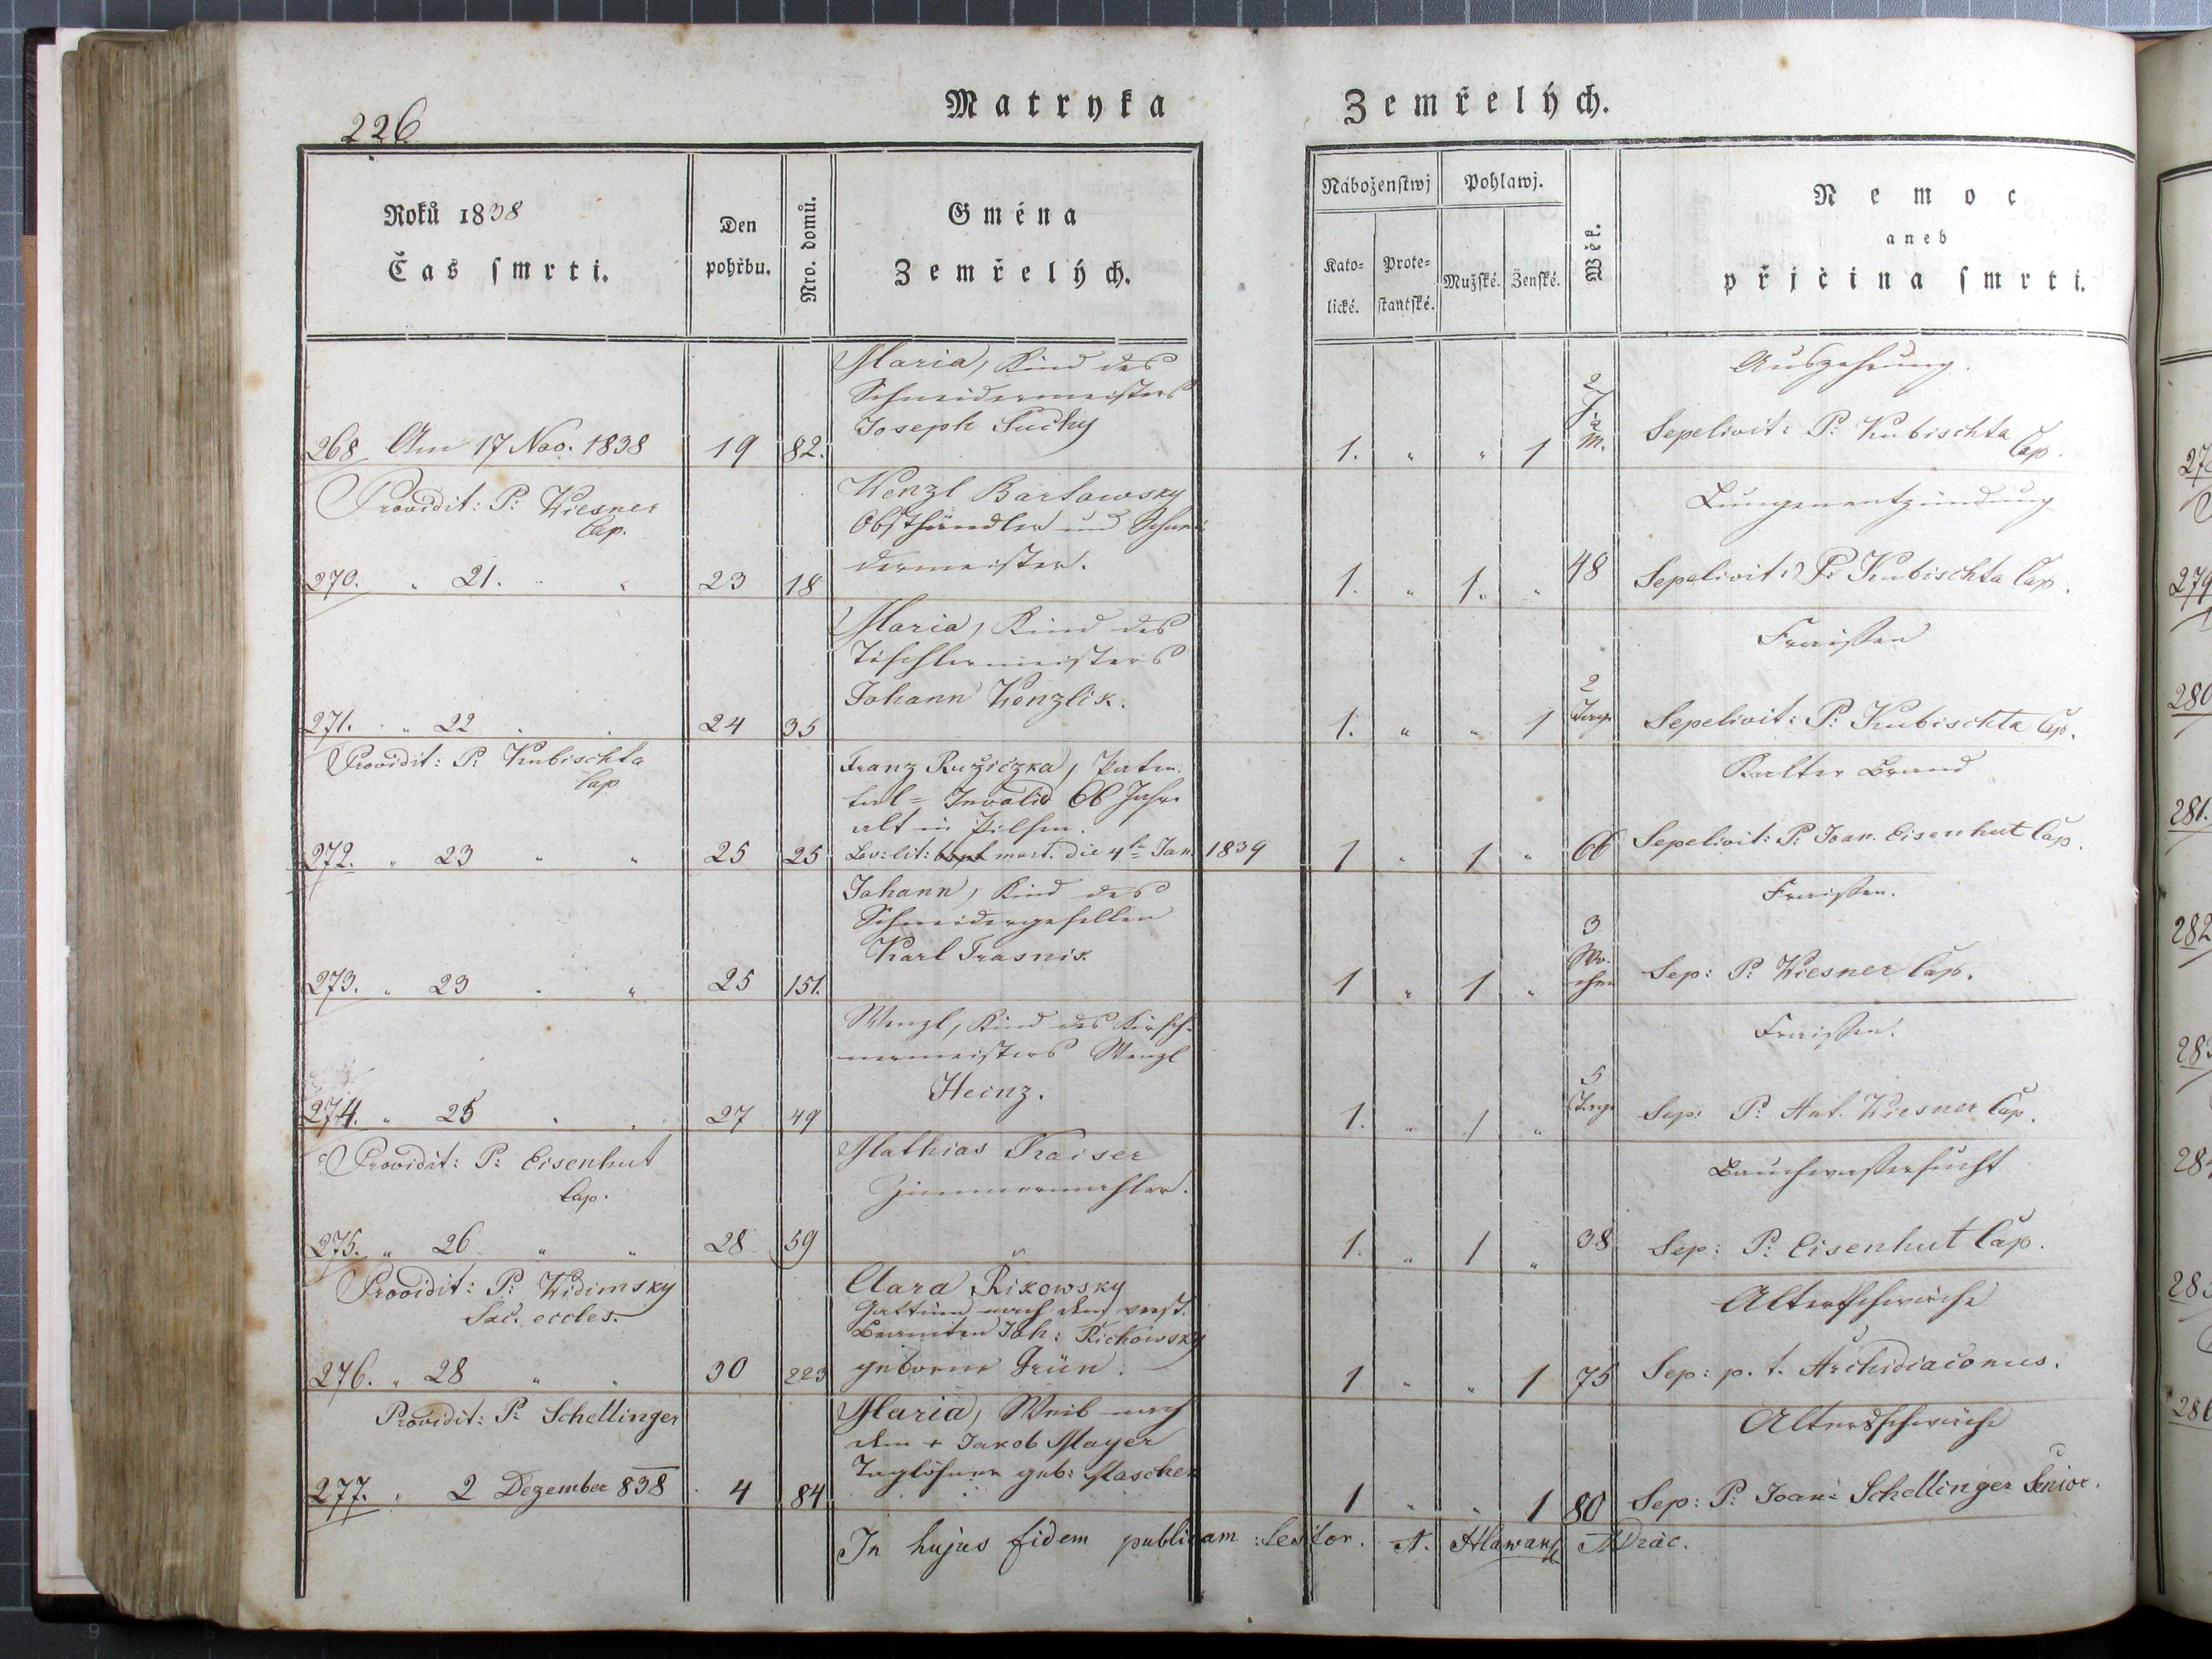 226
Matryka Zemřelých.
Roků 1838
Čas smrti.
Den pohřbu.
Nro. domů.
Gména Zemřelých.
Náboženstwj
Kato=
lické.
Prote=
stantské.
Pohlawj.
Mužské.
Ženské.
Wěk.
Nemoc
aneb
přjčina smrti.
Maria, Kind des
Schneidermeisters
Joseph Suchy
Auszehrung.
268 Am 17 Nov. 1838 19 82. 1. " " 1 2 J. 2 M. Sepelivit: P: Kubischta Cap.
Providit: P: Wiesner
Cap.
Wenzl Bartowsky
Obsthändler und Schnei
dermeister.
Lungenentzündung
270. " 21. " " 23 18 1. " 1. " 48 Sepelivit: P: Kubischta Cap.
Maria, Kind des
Tischlermeisters
Johann Wenzlik.
Fraißen
271. " 22 " " 24 35 1. " " 1 2 Tage Sepelivit: P: Kubischta Cap.
Providit: P: Kubischta
Cap
Franz Ružiczka, Paten
tal= Invalid 66 Jahre
alt in Pilsen.
mort. die 4ta Jan. 1839
Kalter Brand
272. " 23 " " 25 25 1 " 1 " 66 Sepelivit: P: Joan. Eisenhut Cap.
Johann, Kind des
Schneidergesellen
Karl Trasnik
Fraißen.
273. " 23 " " 25 151. 1 " 1 " 3 Wo-
chen Sep: P: Wiesner Cap.
Wenzl, Kind des Kirsch-
nermeisters Wenzl
Heinz.
Fraißen.
274. " 25 " " 27 49 1. " 1 " 5 Tage Sep: P: Ant. Wiesner Cap.
Providit: P: Eisenhut
Cap.
Mathias Kraiser
Zimmermahler.
Bauchwaßersucht
275. " 26 " " 28 59 1. " 1 " 38 Sep: P: Eisenhut Cap.
Providit: P: Widimsky
Sac. eccles.
Clara Rikowsky
Gattinn nach dem verst.
Beamten Joh: Richowsky
geborne Grün.
Altersschwäche
276. " 28 " " 30 223 1 " " 1 75 Sep: p. t. Archidiaconus.
Providit: P: Schellinger
Maria, Weib nach
dem + Jakob Mayer
Taglöhner geb: Maschek
Altersschwäche
277. " 2 Dezember 838 4 84 1 " " 1 80 Sep: P: Joan: Schellinger Senior.
In hujus fidem publicam: A.